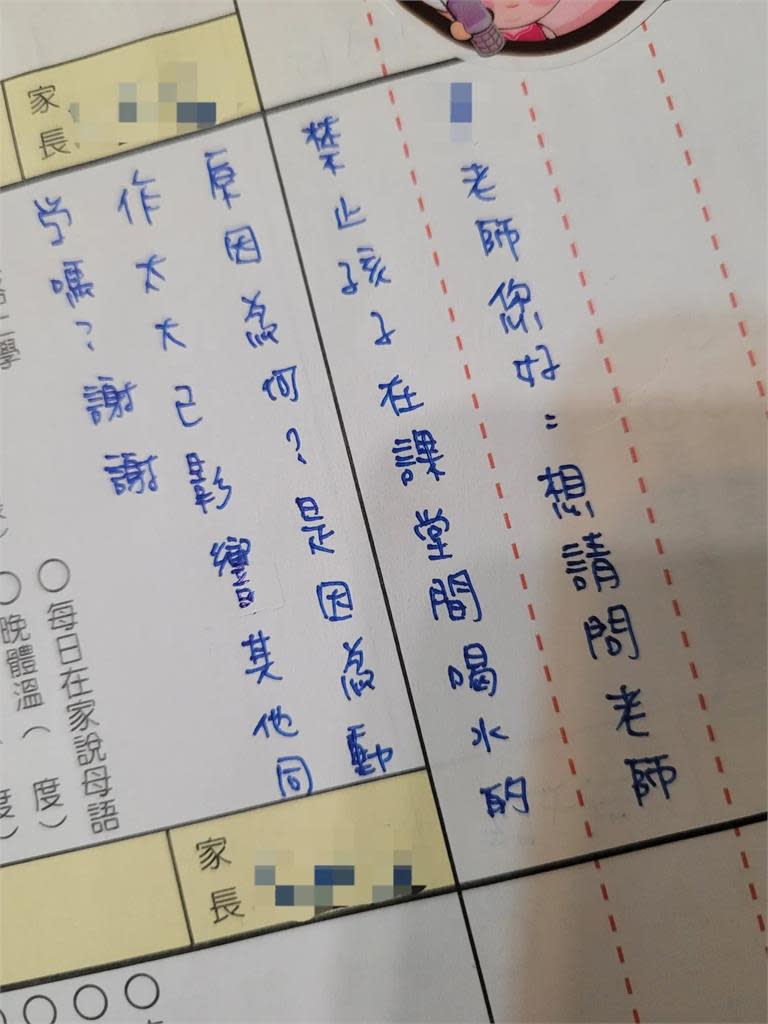 老師您好：想請問老師
禁止孩子在課堂間喝水的
原因為何？是因為動
作太大已影響其他同
學嗎？謝謝
家長
家長
每日在家說母語
晚體溫（ 度）
度）
學